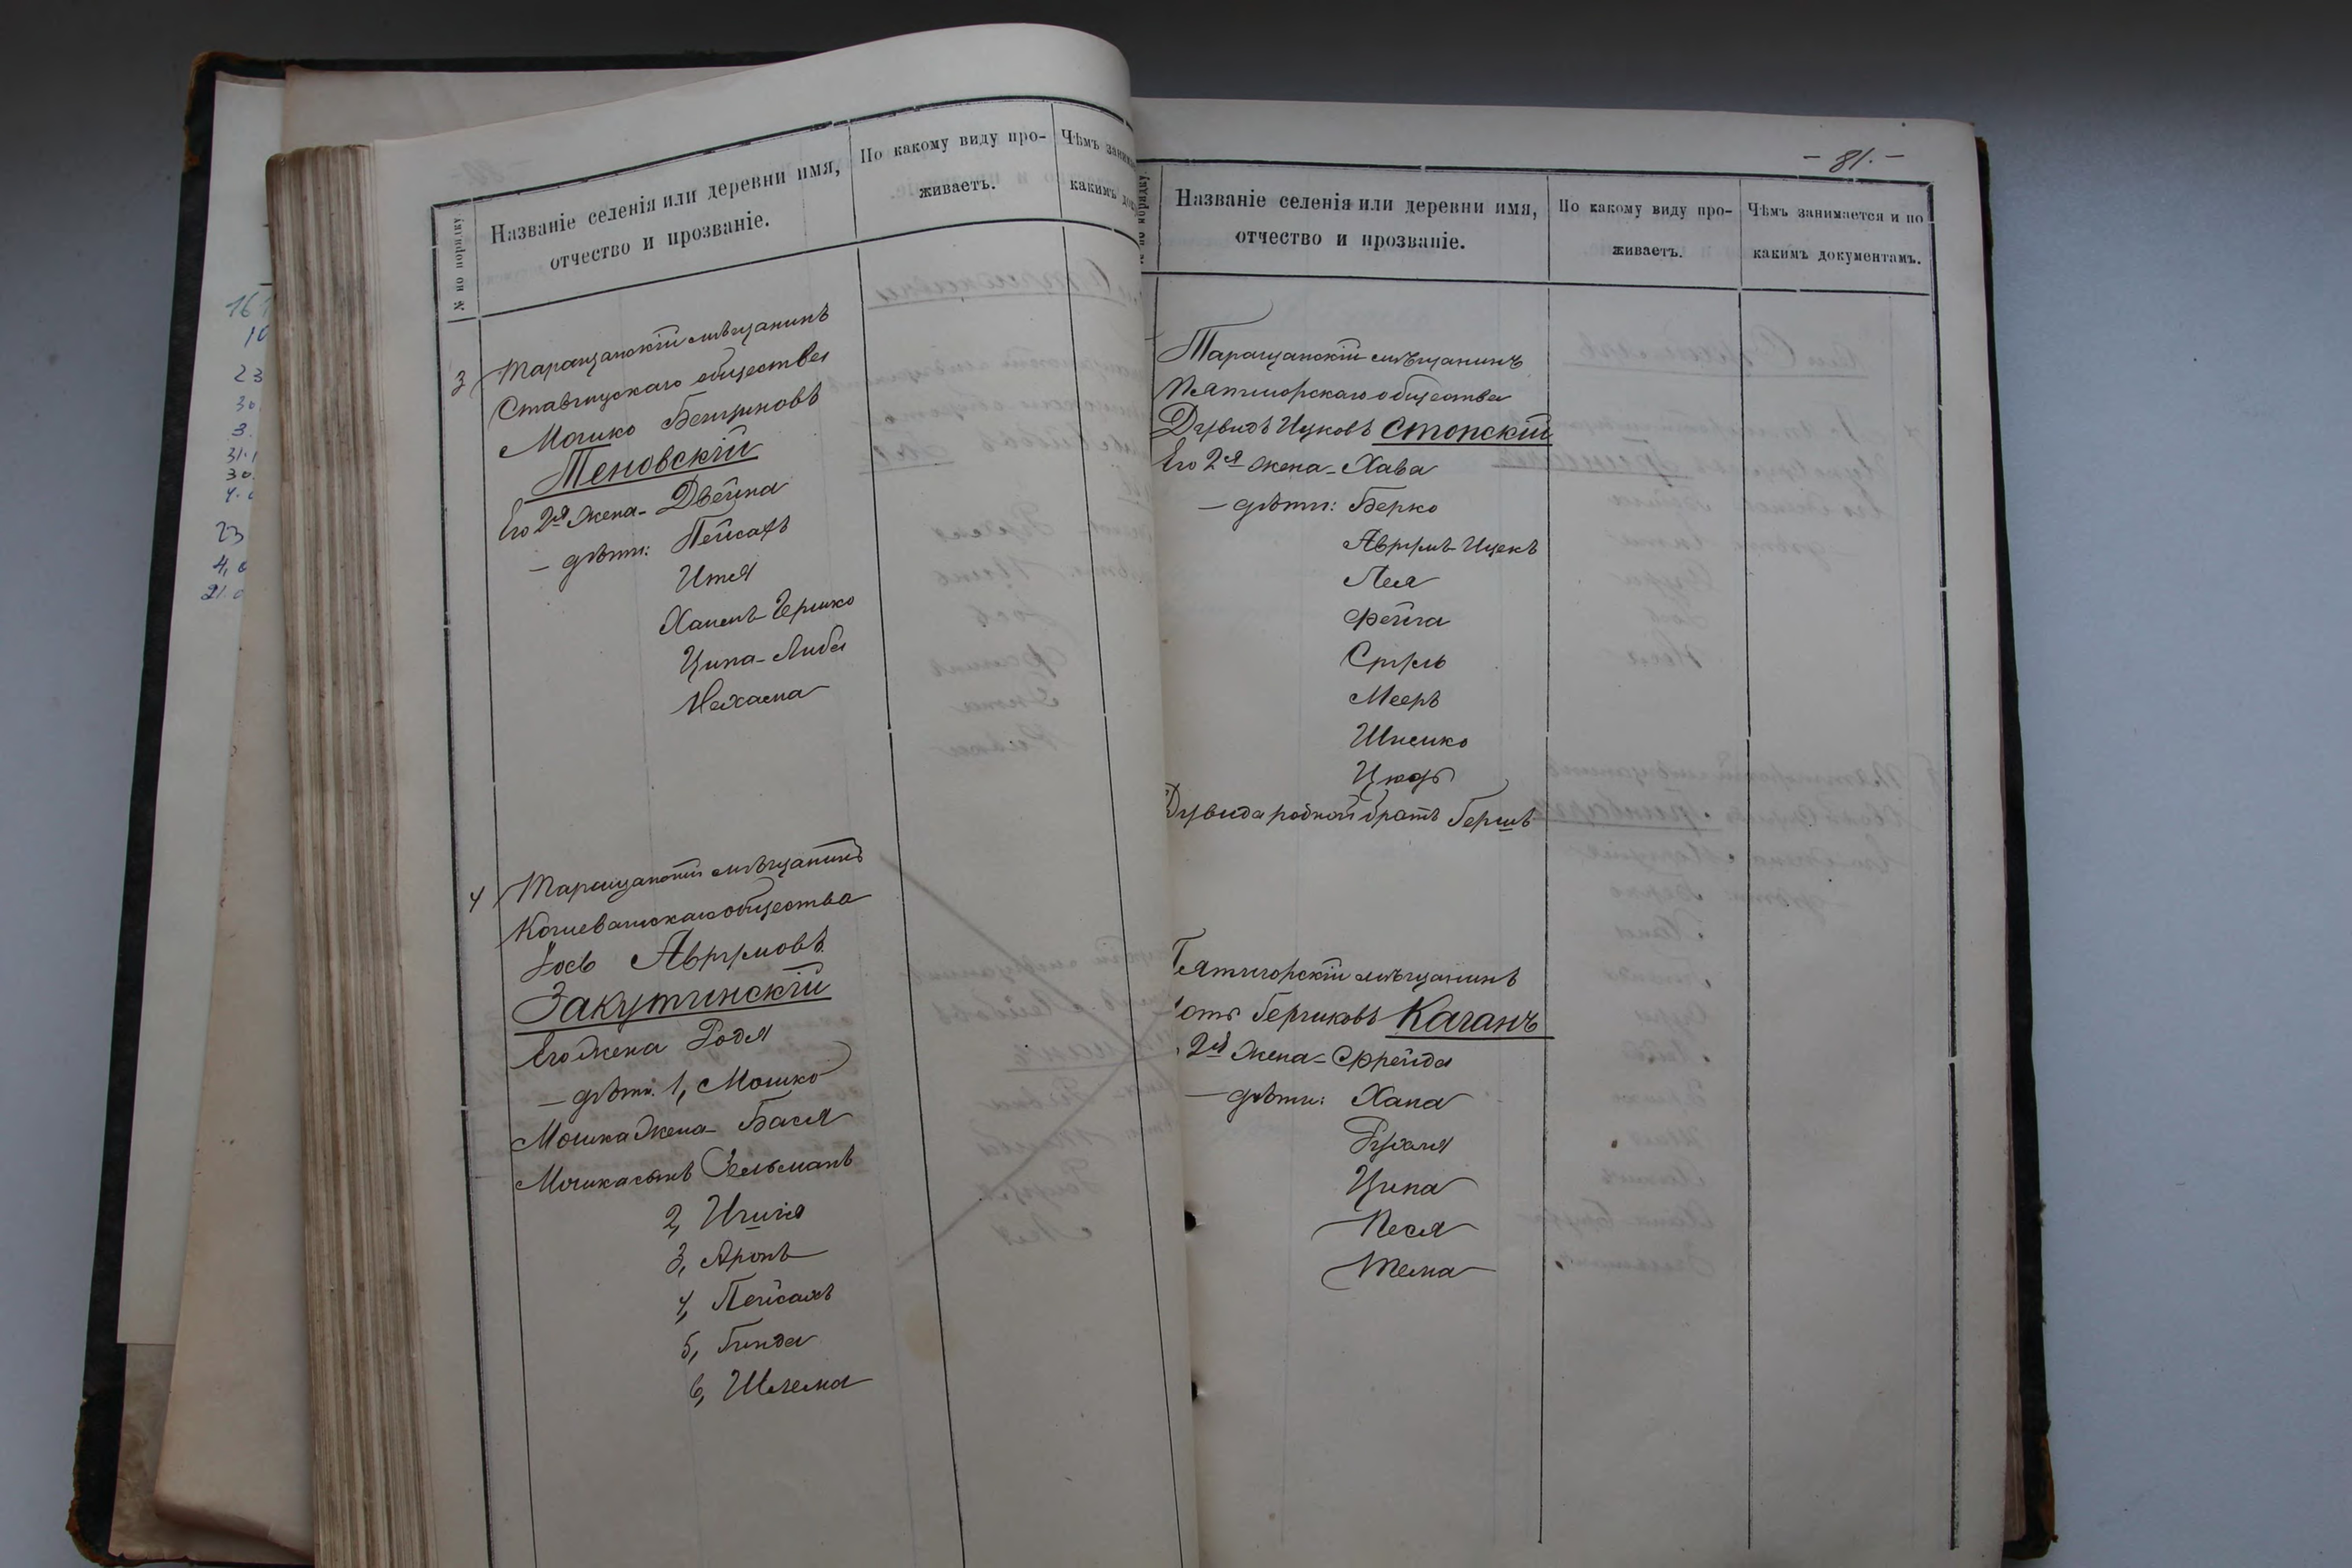 № по порядку
Названіе селенія или деревни имя,
отчество и прозваніе.
По какому виду про-
живаетъ.
Чѣмъ
какимъ
3 Таращанскій мѣщанинъ
Ставищскаго общества
Мошко
Теновскій
Его 2я жена - Двейна
- дѣти: Пейсахъ
Итя
Хаимъ-Гершко
Ципа-Либа
Нехама
4 Таращанскій мѣщанинъ
Кошеватскаго общества
Іось Аврумовъ
Закутинскій
Его жена Родя
- дѣти. 1, Мошко
Мошка жена - Бася
Мошка сынъ Зельманъ
2,
3, Аронъ
4, Пейсахъ
5, Гинда
6, Шлема
- 81. -
по порядку.
Названіе селенія или деревни имя,
отчество и прозваніе.
По какому виду про-
живаетъ.
Чѣмъ занимается и по
какимъ документамъ.
Таращанскій мѣщанинъ
Пятигорскаго общества
Дувидъ Ицковъ Стопскій
Его 2я жена - Хава
- дѣти: Берко
Аврумъ-Ицекъ
Лея
Фейга
Суръ
Мееръ
Шлемко
Дувида родной братъ Гершъ
Пятигорскій мѣщанинъ
Гершковъ Каганъ
2я жена - Фрейда
- дѣти: Хана
Рухля
Ципа
Песя
Тема
16
10
23
30
3.
31.1
30.
4.
23
4,
21.